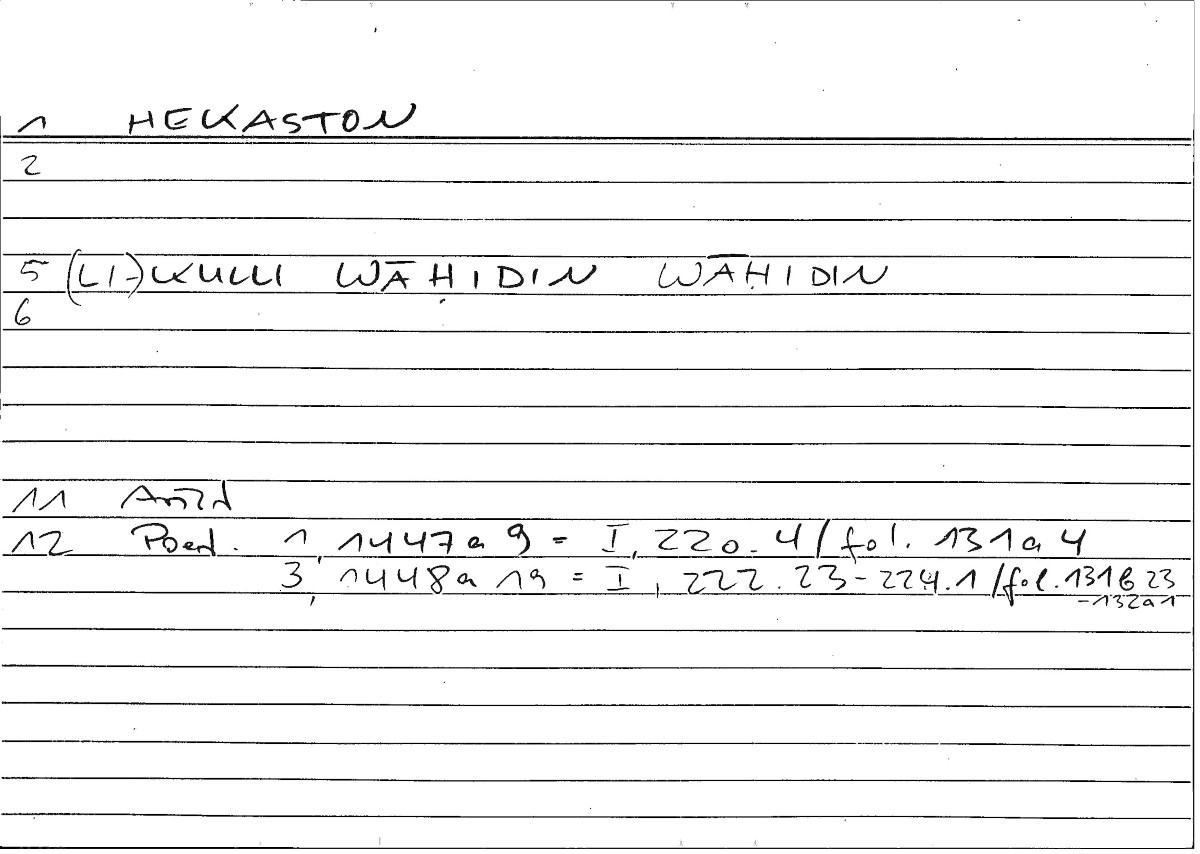 1 HEKASTON
2
5 (LI-)KULLI WĀḤIDIN WĀḤIDIN
6
11 Arist
12 Poet. 1, 1447a 9 = I, 220.4/fol. 131a 4
3, 1448a 19 = I, 222.23-224.1/fol. 131b 23
-132a1